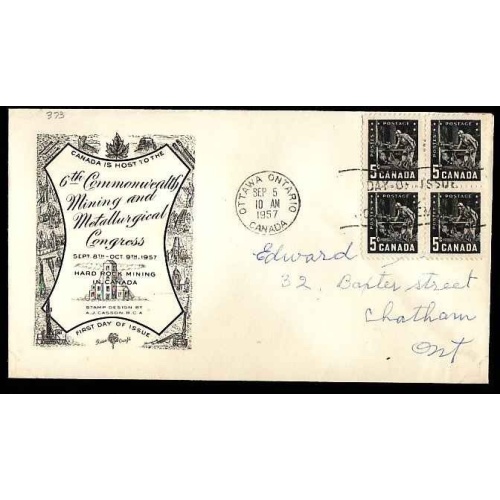 373
CANADA IS HOST TO THE
6th Commonwealth
Mining and
Metallurgical
Congress
SEPT. 8TH - OCT. 9TH, 1957
HARD ROCK MINING
IN CANADA
STAMP DESIGN BY
A.J. CASSON R.C.A
FIRST DAY OF ISSUE
Rose Craft
OTTAWA ONTARIO
SEP 5
10 AM
1957
CANADA
POSTES POSTAGE
5 CANADA
POSTES POSTAGE
5 CANADA
DAY-OF-ISSUE
POSTES POSTAGE
5 CANADA
POSTES POSTAGE
5 CANADA
Edward
32, Baxter street
Chatham
Ont